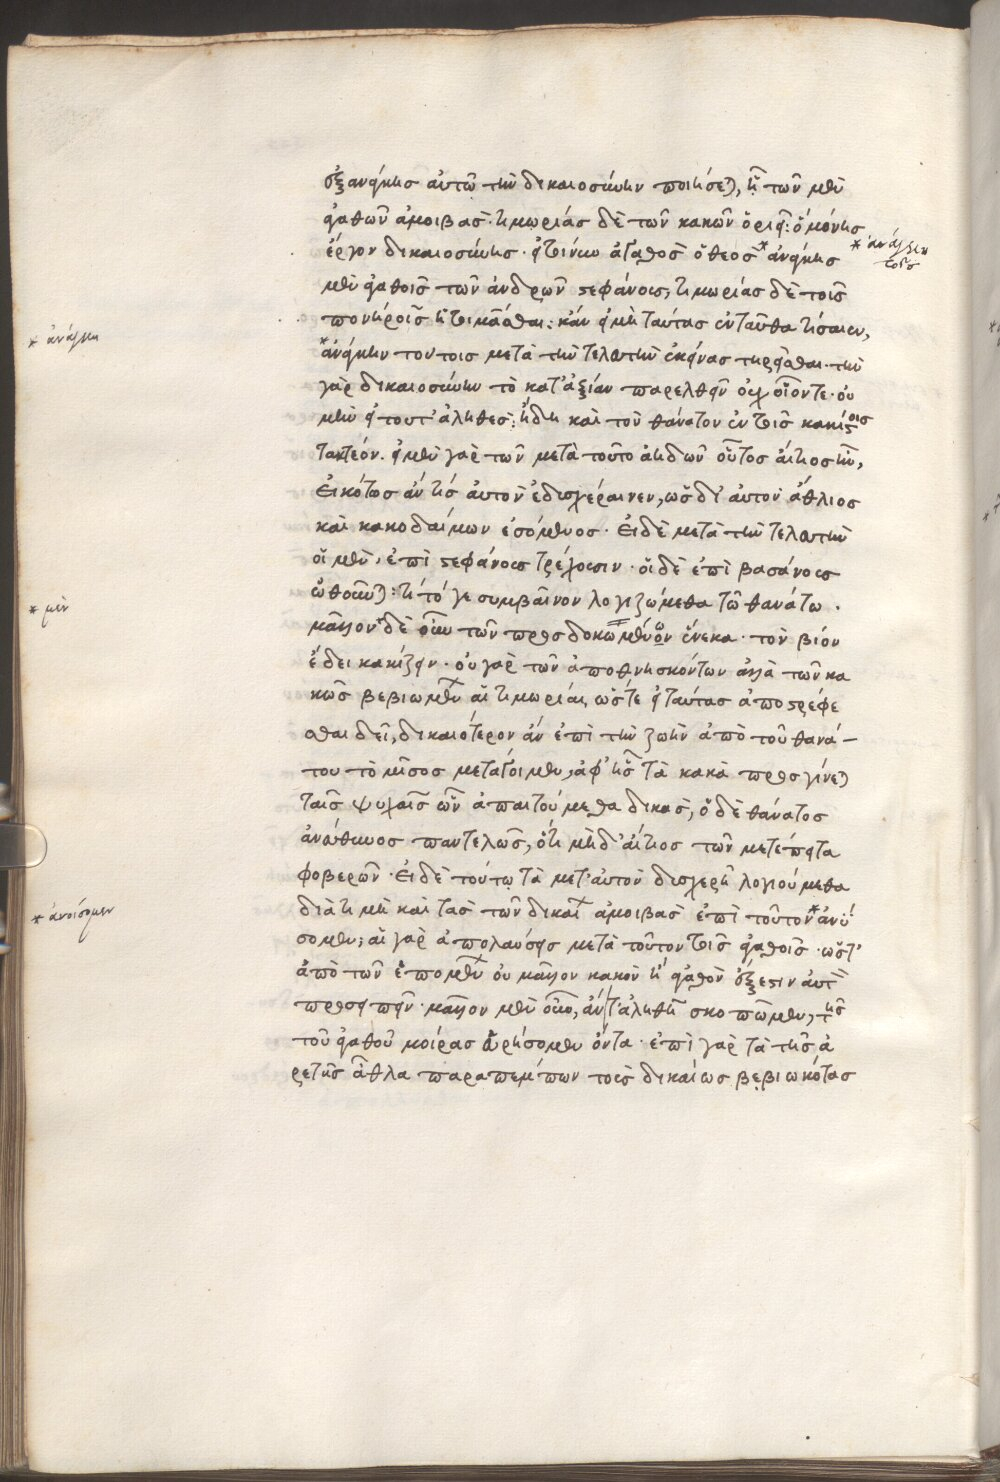 ἐξανάγκης αὐτῶ τὴν δικαιοσύνην ποιήσεται, ἢ τῶν μὲν
ἀγαθῶν ἀμοιβὰς· τιμωρίας δὲ τῶν κακῶν ὁ μόνης
ἔργον δικαιοσύνης· εἰ τοίνυν ἀγαθὸς ὁ θεὸς * ἀνάγκης
* ἀνάγκη τοῖς
μὲν ἀγαθοῖς τῶν ἀνδρῶν στεφάνους, τιμωρίας δὲ τοῖς
πονηροῖς κἂν εἰ μὴ ταύτας ἐνταῦθα τίσαιεν,
* ἀνάγκη
* ἀνάγκην τούτοις μετὰ τὴν τελευτὴν ἐκείνας τηρεῖσθαι· τὴν
γὰρ δικαιοσύνην τὸ κατ' ἀξίαν παρελθεῖν οὐχ οἷόν τε· οὐ
μὴν εἰ τοῦτ' ἀληθὲς· ἤδη καὶ τὸν θάνατον ἐν τοῖς κακίστοις
τακτέον. εἰ μὲν γὰρ τῶν μετὰ τοῦτο ἀηδῶν οὗτος αἴτιος ἦν,
εἰκότως ἄν τίς αὐτὸν ἐδυσχέραινεν, ὡς δι' αὐτὸν ἄθλιος
καὶ κακοδαίμων ἐσόμενος· εἰ δὲ μετὰ τὴν τελευτὴν
οἱ μὲν, ἐπὶ στεφάνους τρέχουσιν· οἱ δὲ ἐπὶ βασάνους
ὠθοῦνται: τί τό γε συμβαῖνον λογιζώμεθα τῶ θανάτω·
* μὲν
μᾶλλον δὲ οὖν τῶν προσδοκωμένων ἕνεκα· τὸν βίον
ἔδει κακίζειν· οὐ γὰρ τῶν ἀποθνησκόντων ἀλλὰ τῶν κα
κῶς βεβιωμένων αἱ τιμωρίαι, ὥστε εἰ ταύτας ἀποστρέφε
σθαι δεῖ, δικαιότερον ἂν ἐπὶ τὴν ζωὴν ἀπὸ τοῦ θανά-
του τὸ μῖσος μετάγοιμεν, ἀφ' ἧς τὰ κακὰ προσγίνεται
ταῖς ψυχαῖς ὧν ἀπαιτούμεθα δίκας, ὁ δὲ θάνατος
ἀνεύθυνος παντελῶς, ὅτι μηδ' αἴτιος τῶν μετέπειτα
φοβερῶν· εἰ δὲ τούτω τὰ μετ' αὐτὸν δυσχερῆ λογιούμεθα
* ἀνοίσομεν
διὰ τί μὴ καὶ τὰς τῶν δικαίων ἀμοιβὰς ἐπὶ τοῦτον * ἀνύ
σομεν; αἱ γὰρ ἀπολαύσεις μετὰ τοῦτον τοῖς ἀγαθοῖς· ὥστ'
ἀπὸ τῶν ἑπομένων οὐ μᾶλλον κακὸν ἢ ἀγαθὸν ἔξεστιν αὐτὸν
προσειπεῖν· μᾶλλον μὲν οὖν, ἂν τἀληθῆ σκοπῶμεν, τῆς
τοῦ ἀγαθοῦ μοίρας εὑρήσομεν ὄντα· ἐπὶ γὰρ τὰ τῆς ἀ
ρετῆς ἆθλα παραπέμπων τοὺς δικαίως βεβιωκότας